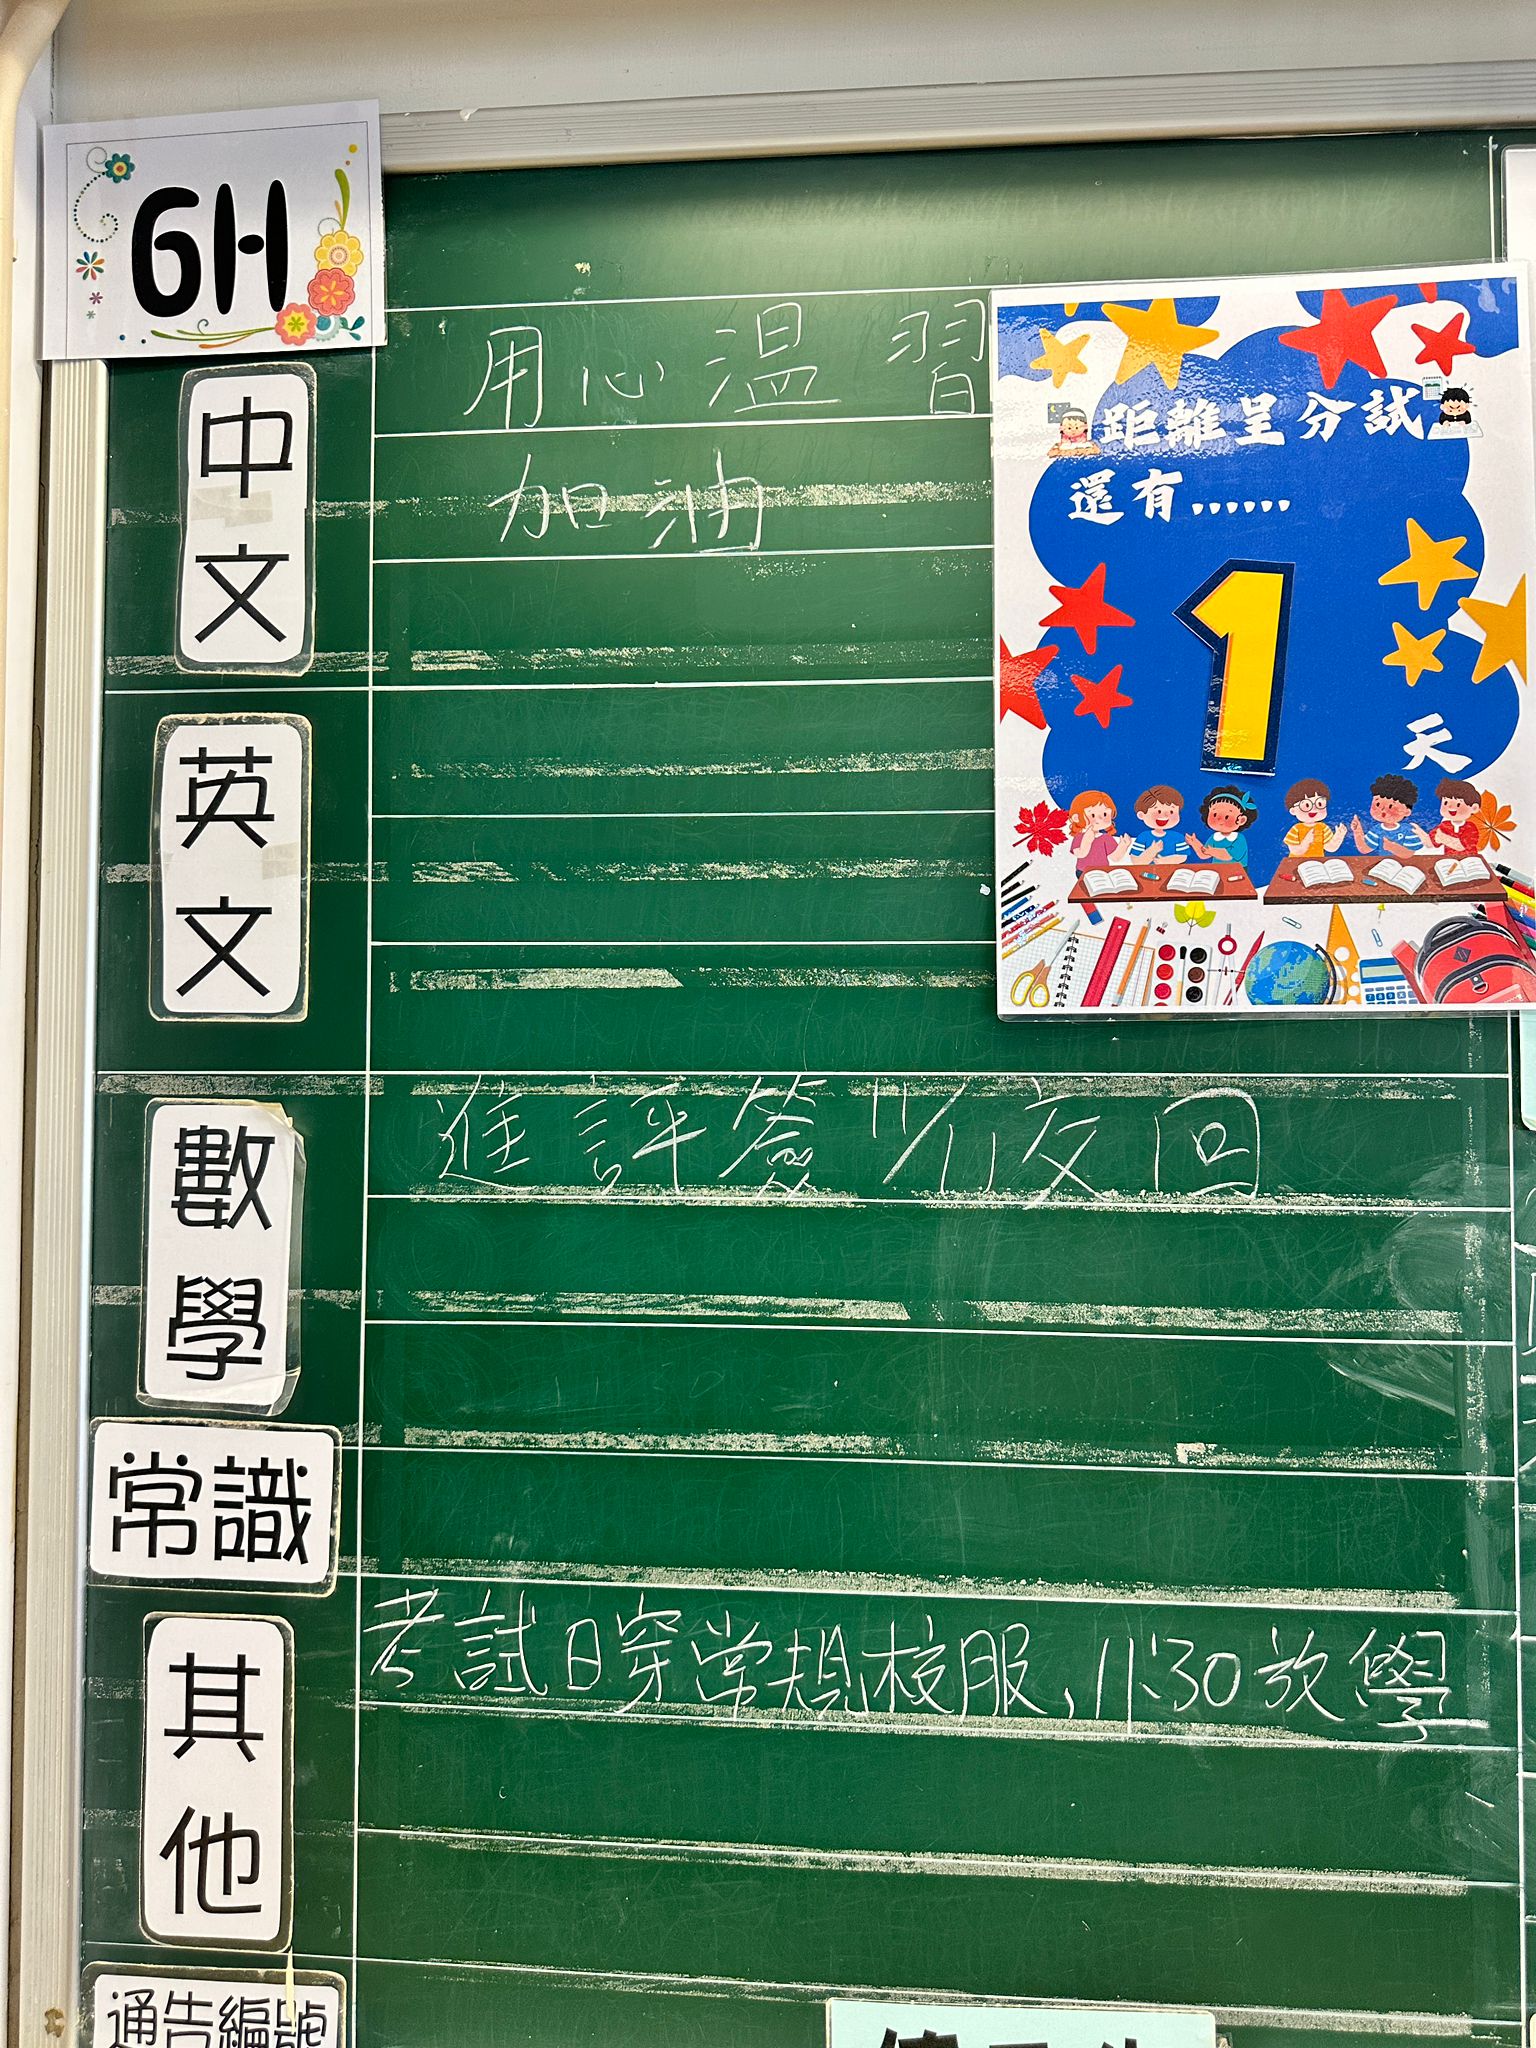 6H
中文
用心溫習
加油
距離呈分試
還有......
1
天
英文
數學
進評簽 11/11交回
常識
其他
考試日穿常規校服，11:30放學
通告編號